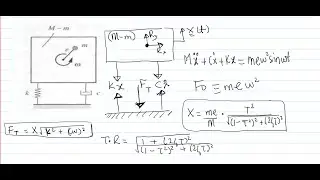 M-m
m
e
k
c
(M-m)
x(t)
Kx
F_T
Cẋ
Mẍ + Cẋ + Kx = meω² sinωt
F₀ = meω²
X = me/M · r²/√((1-r²)² + (2ζr)²)
F_T = X√(K² + (cω)²)
T.R = √(1 + (2ζr)²)/√((1-r²)² + (2ζr)²)